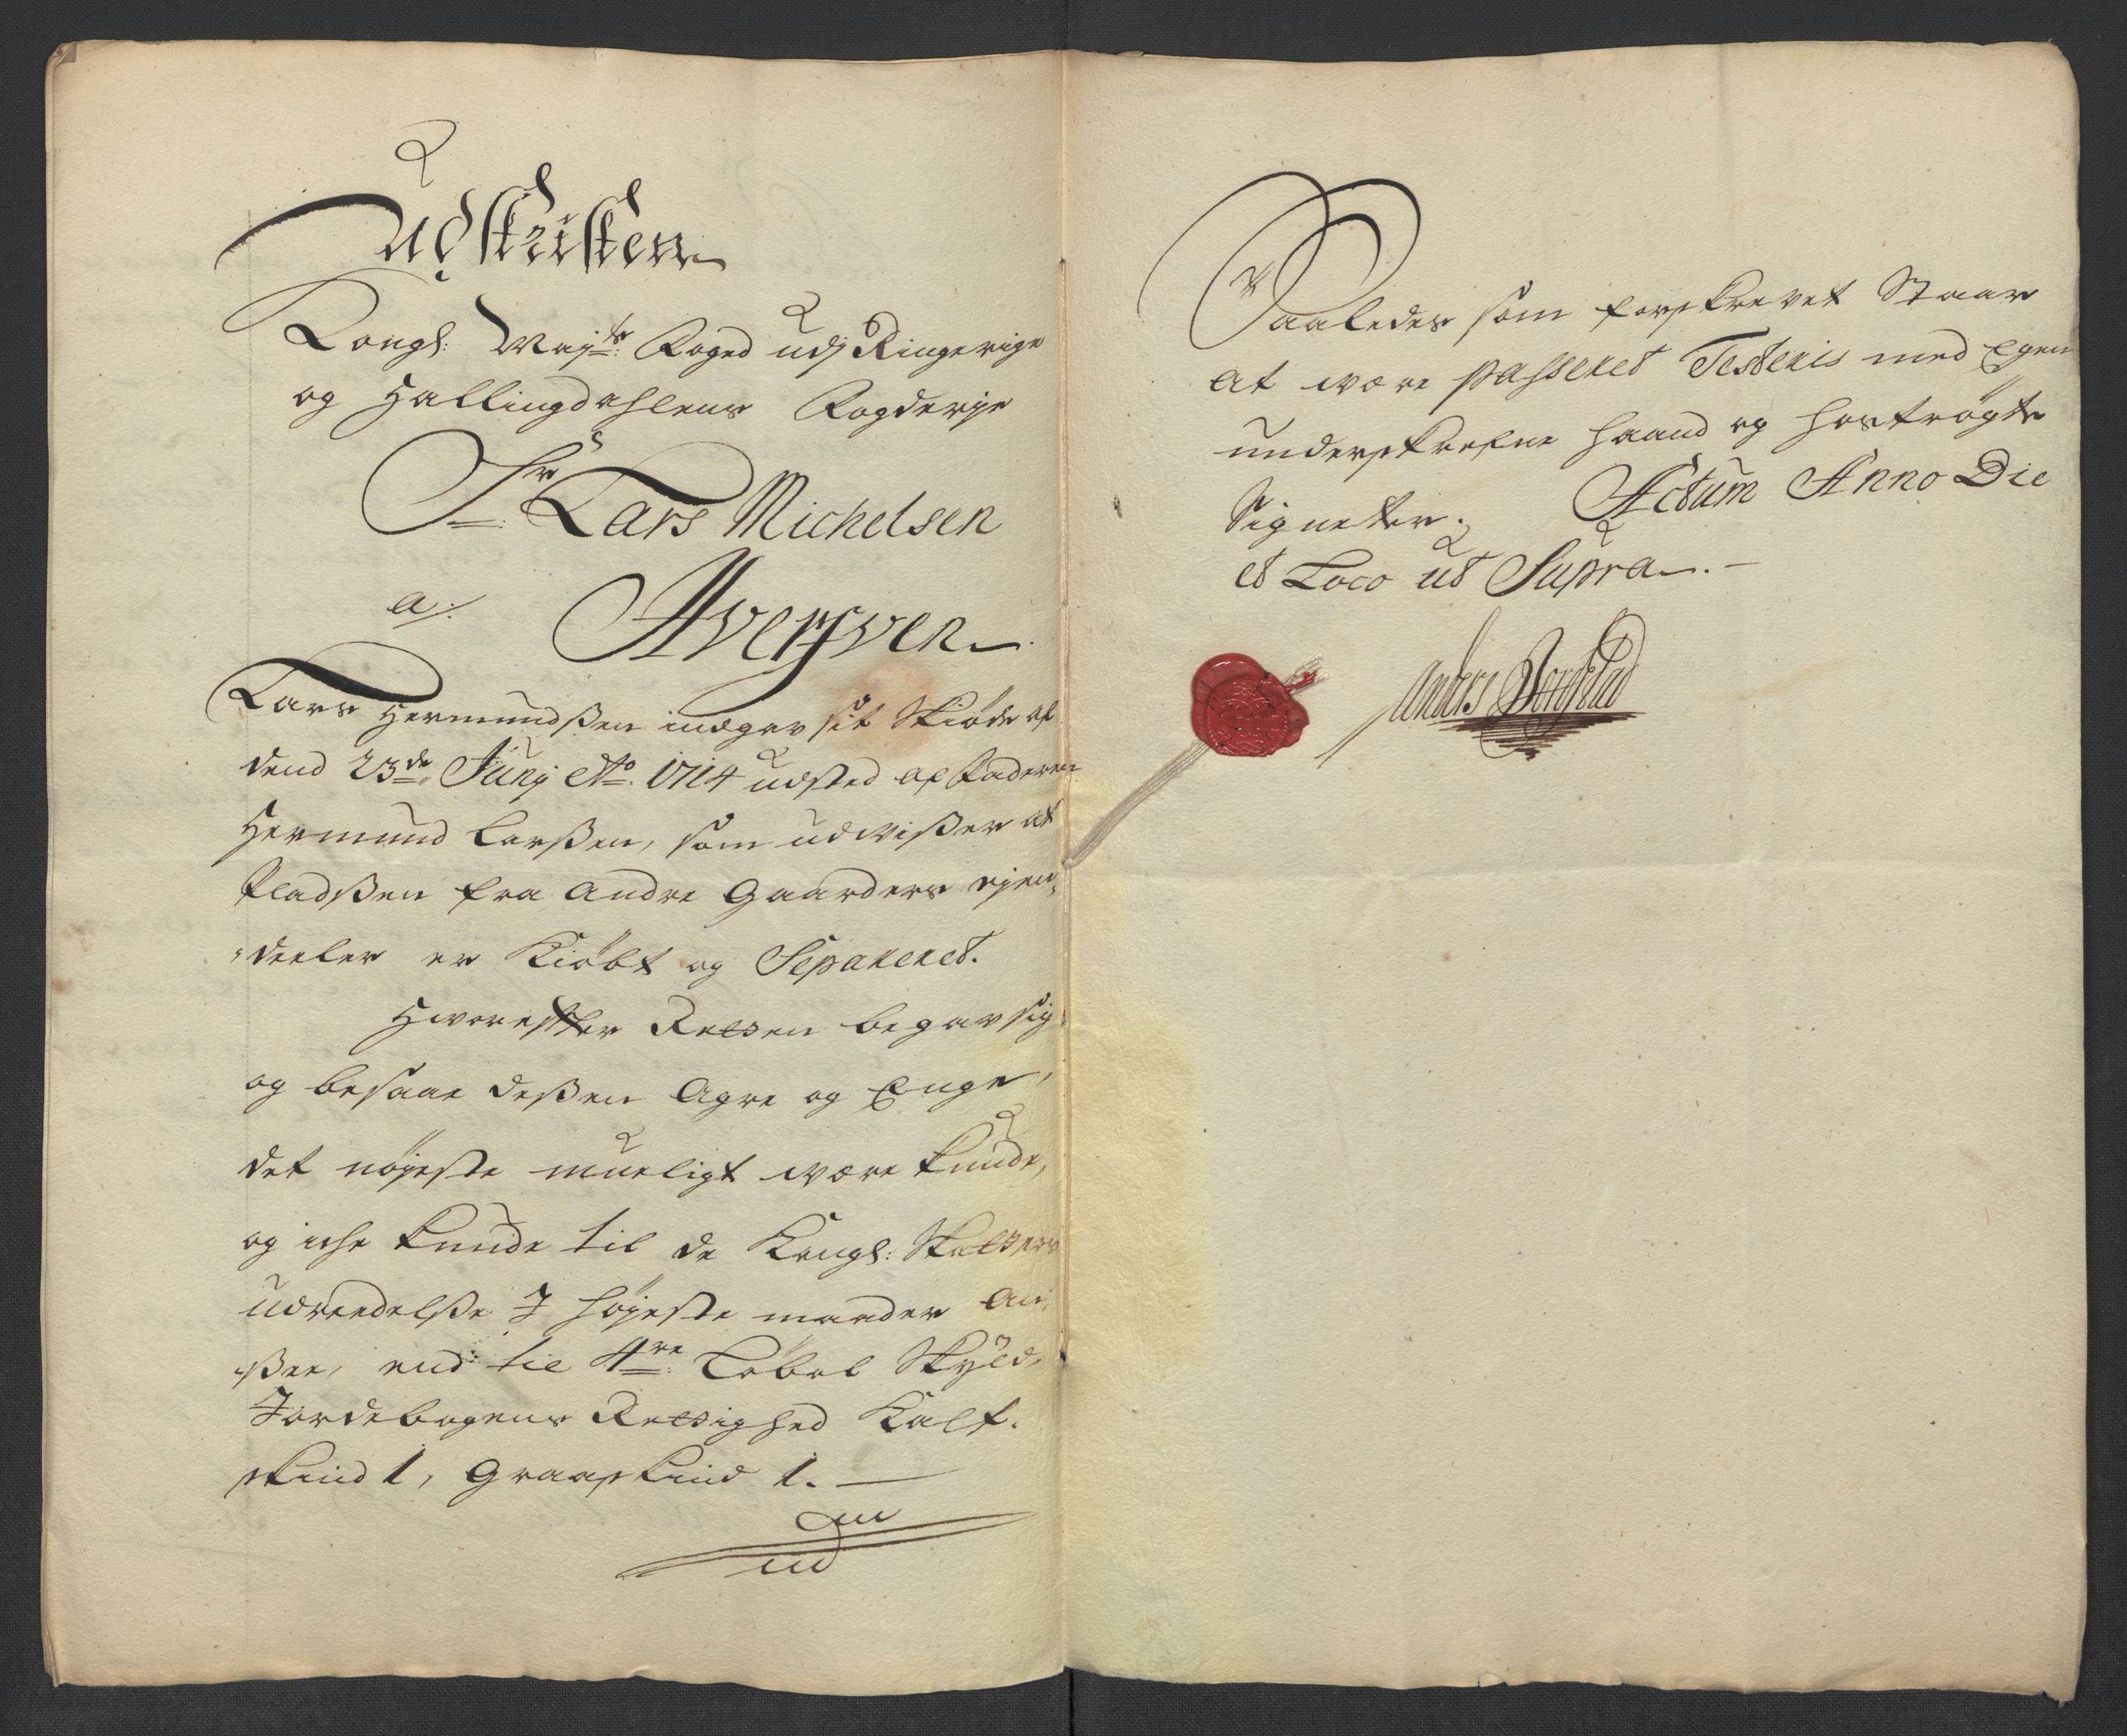 Udskriften
Kongl: Maj:ts Foged udj Ringerige
og Hallingdahlens Fogderje
Sr Lars Michelsen
a:
Lars Hermundßen indgav sit Skiøde af
dend 23de Junj Ao 1714 udsted af Faderen
Hermund Larßen, som udvißer at
Pladßen fra andre Gaarders ejen-
deeler er Kiøbt og Separeret.
Hvorefter Retten begav sig
og besaae deßen Agre og Enge,
det nøjeste mueligt være kunde,
og iche kunde til de Kongl: Skatters
udreedelße J høyeste maader an-
ßee, end til 4re Løbol Skyld,
Jordebogens Rettighed Kalf-
skind 1, Graaskind 1.
Saaledes som forskrevet Staar
at være passeret Testeris med Egen
underskrefne haand og hostrøgte
Signeter. Actum Anno Die
et Loco ut Supra.
Anders